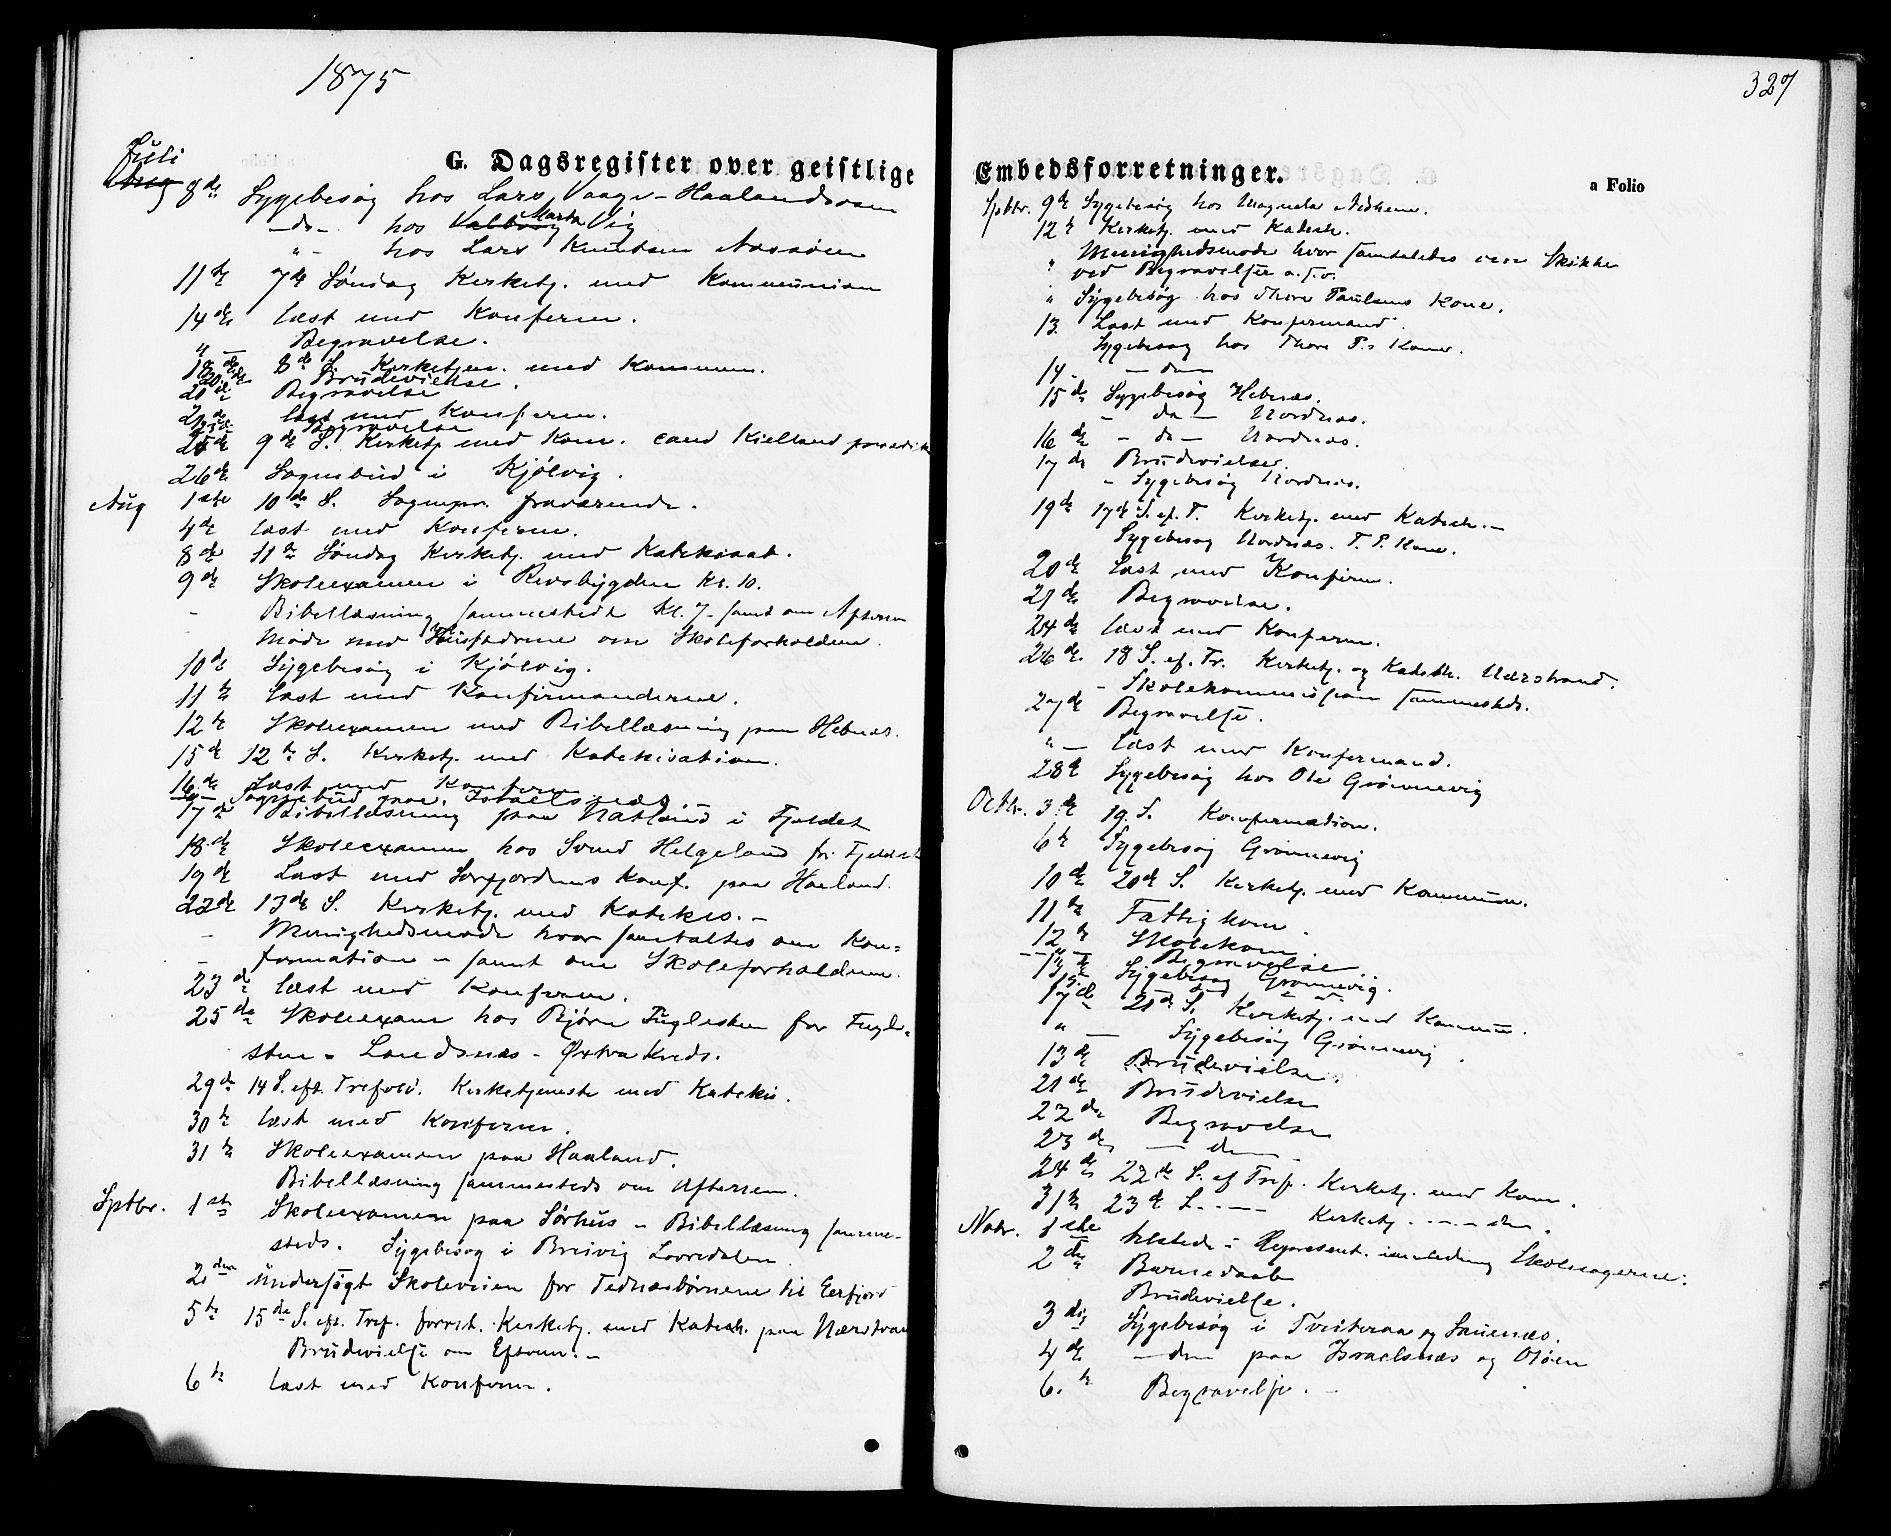 1875
G. Dagsregister over geistlige
Juli
Aug 8de Sygebesøg hos Lars Vaage - Haalandsosen
- do - hos Valborg Marta Vig
" - hos Lars Knutsen
11te 7de Søndag Kirketj. med Kommunion
14de læst med Konferm.
" Begravelse.
18de 8de S. Kirketjen. med Kommun.
Brudevielse.
20de Begravelse
21de læst med Konferm.
Begravelse
25de 9de S. Kirketj. med Kom. cand Kielland
26de Sognebud i Kjölvig.
Aug 1ste 10de S. Sognepr. fraværende.
4de læst med Konferm.
8de 11te Søndag Kirketj. med Katekisat.
9de Skoleexamen i Revsbygden Kl. 10.
- Bibellæsning sammesteds Kl. 7 - samt om Aftenen
Møde med Husfædrene om Skoleforholdene.
10de Sygebesøg i Kjölvig.
11te læst med Konfirmanderne.
12te Skoleexamen med Bibellæsning paa Hebnæs.
15de 12te S. Kirketj. med Katekisation.
16de Læst med Konferm
- " - Sognebud paa Israelsnæs.
17de Bibellæsning paa Natland i Fjeldet
18de Skoleexamen hos Svend Helgeland
19de Læst med Sørfjordens Konf. paa Haaland.
22de 13de S. Kirketj. med Katekis. -
- Menighedsmøde hvor samtaltes om Kon=
- firmationen - samt om Skoleforholdene.
23de læst med Konferm.
25de Skoleexam hos Bjørn Fuglesteen for Fugle-
steen - Landsnæs - Kreds.
29de 14 S. eft. Trefold. Kirketjeneste med Katekis.
30te læst med Konferm.
31te Skoleexamen paa Haaland.
Bibellæsning sammesteds om Aftenen.
Sptbr. 1ste Skoleexamen paa Sørhus - Bibellæsning samme-
steds. Sygebesøg i Breivig Lovredalen.
2den undersøgt Skoleveien for Tednæsbørnene til Erfjord
5te 15de S. eft. Tref. forret. Kirketj. med Katech. paa Nærstran
Brudevielse om Efterm. -
6te læst med Konferm.
327
Embedsforretninger.
a Folio
Sptbr. 9de Sygebesøg hos Magnela
12te Kirketj. med Katech.
" Menighedsmøde hvor samtaledes over Skikke
ved Begravelser o.s.v.
" Sygebesøg hos Thore Paulsens Kone.
13. Læst med Konfermand.
Sygebesøg hos Thore P.s Kone.
14 - den
15de Sygebesøg Hebnæs.
- do - Nordnæs.
16de - do - Nordnæs.
17de Brudevielse.
- Sygebesøg Nordnæs.
19de 17de S. ef. T. Kirketj. med Katech. -
Sygebesøg Nordnæs. T. P. Kone.
20de læst med Konferm.
21de Begravelse.
24de læst med Konferm.
26de. 18 S. ef. Tr. Kirketj. og Katech. Nærstrand.
- Skolekommission sammesteds.
27de Begravelse.
" - læst med Konfermand.
28de Sygebesøg hos Ole Grønnevig
Octbr. 3de 19. S. Konfermation.
6te Sygebesøg Grønnevig
10de 20de S. Kirketj. med Kommunion.
11te Fattigkom.
12te Skolekom
- " - Begravelse.
Sygebesøg Grønnevig.
17de 21de S. Kirketj. med Kommun.
" - Sygebesøg Grønnevig.
13de Brudevielse.
21de Brudevielse
22de Begravelse
23de - den -
24de 22de S. ef Tref. Kirketj. med Kom.
31te 23de S. - - - - Kirketj. - - - - den.
Novbr. 1ste tilstede i Represent. Skolesagerne.
2den Barnedaab
Brudevielse.
3die Sygebesøg i Tveiteraa og Sauenæs.
4de - den paa Israelsnæs og Otøen
6.te Begravelse. -